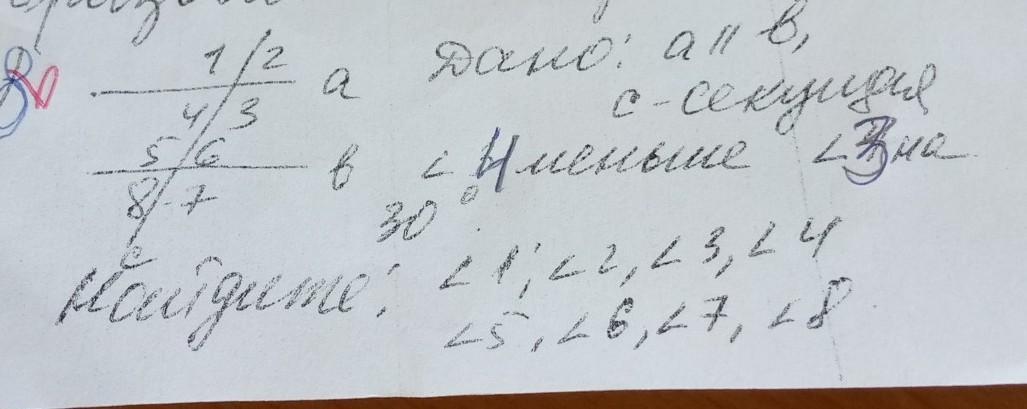 1 2
4 3 a
5 6
8 7 в
c
Дано: a || в,
c-секущая
<4 меньше <3 на
30°
Найдите: <1, <2, <3, <4
<5, <6, <7, <8